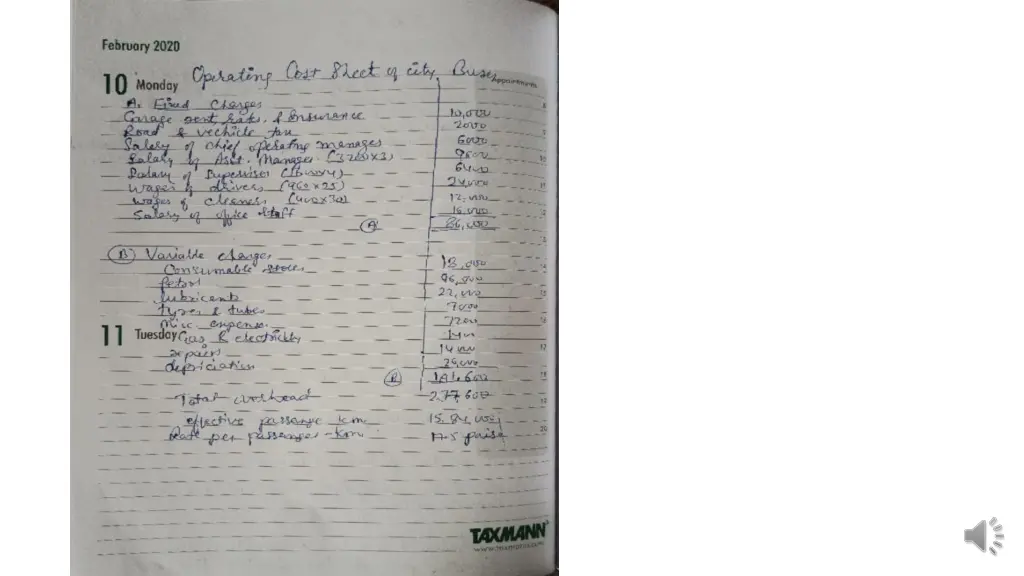 February 2020
10 Monday
Operating Cost Sheet of city Buses
Appointments
A. Fixed Charges
Garage rent, rates & Insurance 10,000
Road & vechicle tax 2000
Salary of chief operating manager 6000
Salary of Asst. Manager (3200x3) 9600
Salary of Supervisor (1600x4) 6400
Wages of drivers (960x25) 24,000
Wages of cleaners (400x30) 12,000
Salary of office staff 16,000
(A) 86,000
(B) Variable charges
Consumable stores 18,000
Petrol 96,000
Lubricants 22,000
tyres & tubes 7000
Misc expense 7200
11 Tuesday
Gas & electricity 1400
repairs 14000
depriciation
(B) 1,91,600
Total overhead 2,77,600
effective passenger km
Rate per passenger-km 17.5 paise
TAXMANN